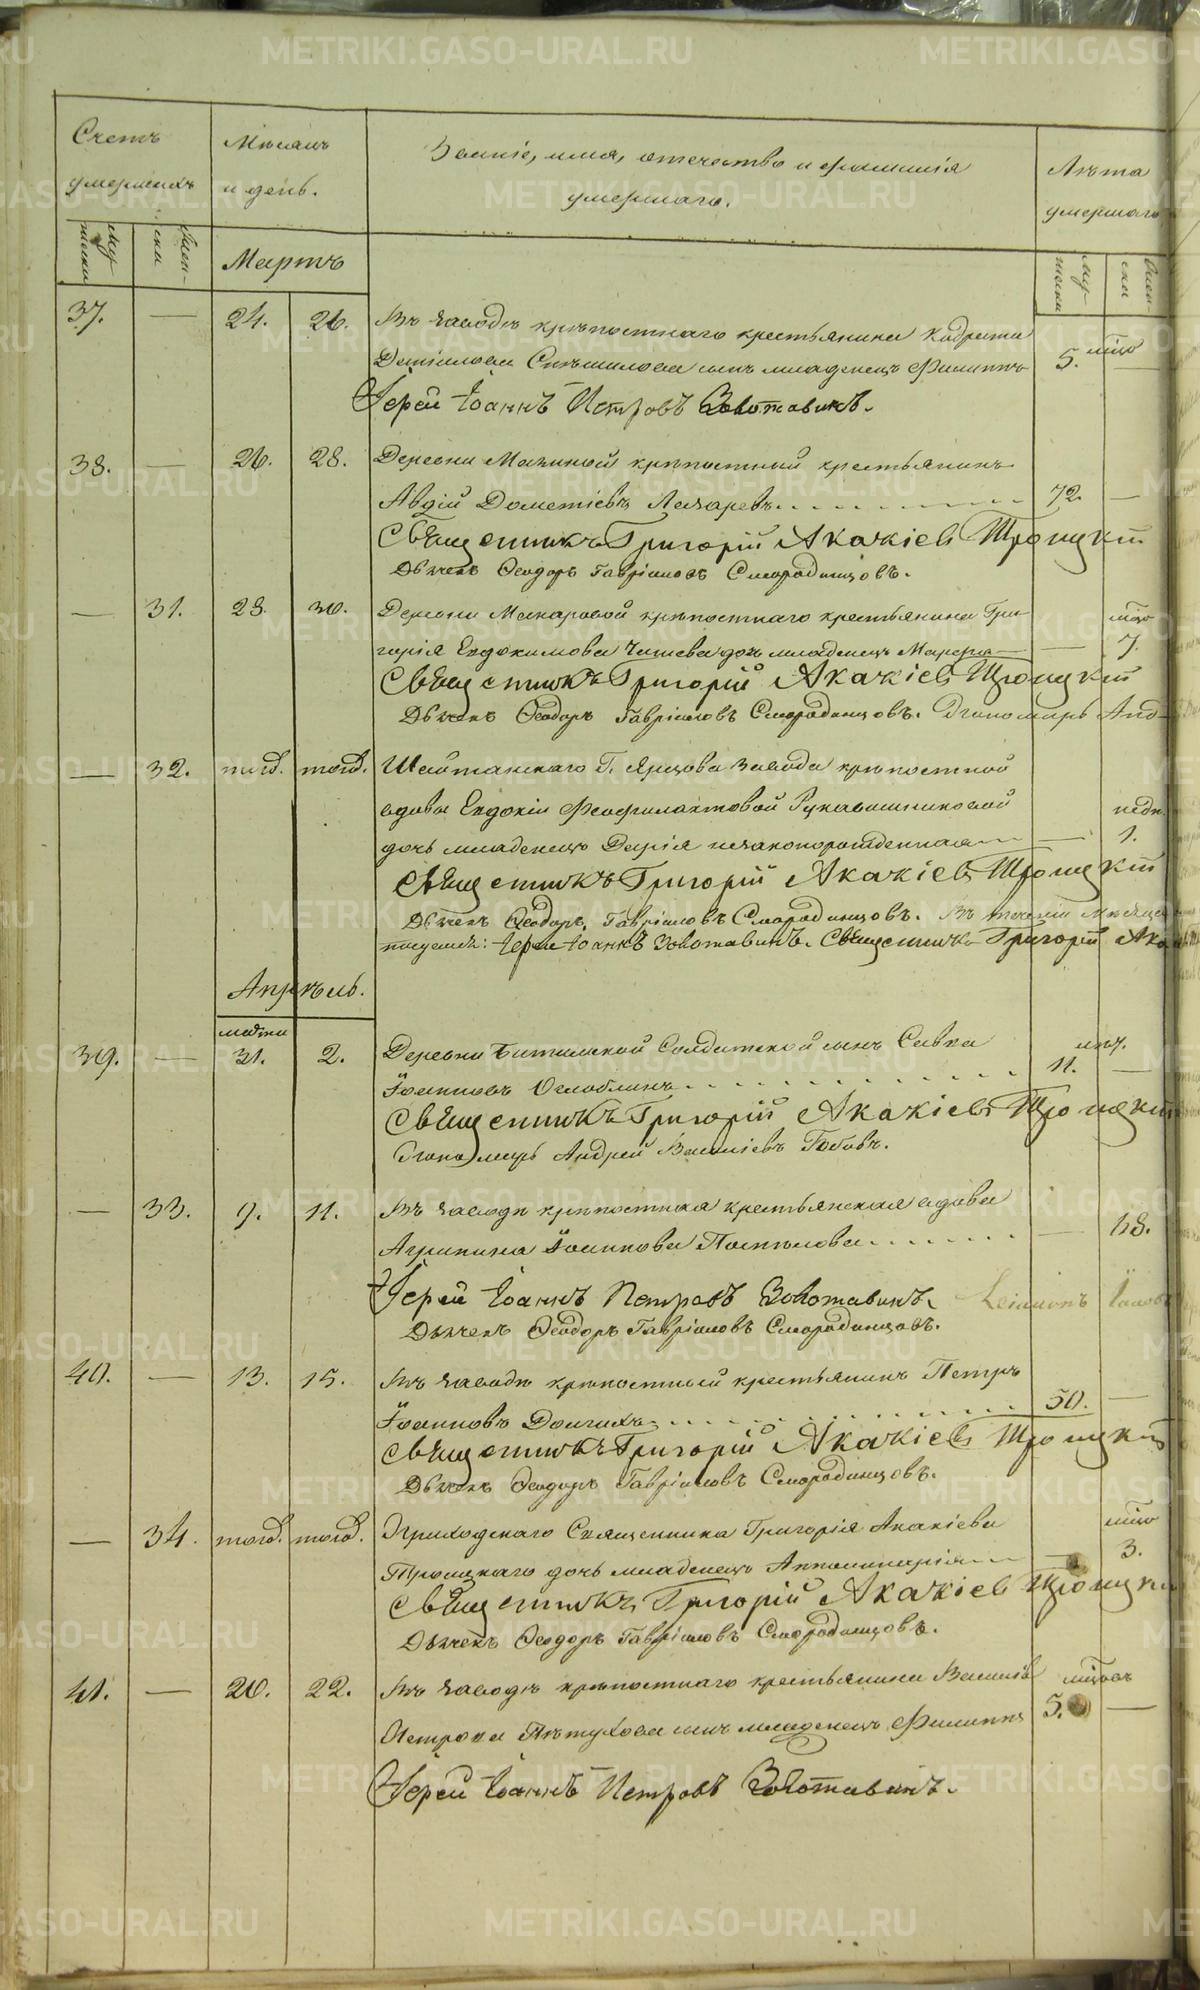 Счетъ умершихъ
Мѣсяцъ и день.
Званіе, имя, отечество и фамилія умершаго.
Лѣта умершаго
мужески
женски
мужески
женски
Мартъ
37. — 24. 26. Въ заводѣ крѣпостнаго крестьянина Кодрата 5. мцо —
сынъ младенецъ Филиппъ
Іерей Іоаннъ Петровъ Золотавинъ.
38. — 26. 28. Деревни крѣпостный крестьянинъ
Авдій Дометіевъ 72. —
Священникъ Григорій Акакіевъ Троицкій
Дьячекъ Ѳеодоръ Гавріиловъ Смородинцовъ.
— 31. 28. 30. Деревни Макаровой крѣпостнаго крестьянина Гри-
горія Евдокимова дочь младенецъ Марѳа — мцо 7.
Священникъ Григорій Акакіевъ Троицкій
Дьячекъ Ѳеодоръ Гавріиловъ Смородинцовъ. Пономарь Анд
— 32. тогд. тогд. Шайтанскаго Г. Ярцова завода крѣпостной
вдовы Евдокіи Феофилактовой Рукавишниковой недѣ.
дочь младенецъ Дарія незаконорожденная — 1.
Священникъ Григорій Акакіевъ Троицкій
Дьячекъ Ѳеодоръ Гавріиловъ Смородинцовъ. Въ теченіи мѣсяца
Іерей Іоаннъ Золотавинъ. Священникъ Григорій Ака
Апрѣль.
марта
39. — 31. 2. Деревни Битимской Солдатской сынъ Савва 11. мѣ. —
Іоанновъ Оглоблинъ
Священникъ Григорій Акакіевъ Троицкій
Пономарь Андрей Василіевъ
— 33. 9. 11. Въ заводѣ крѣпостная крестьянская вдова
Агрипина Іоаннова Поспѣлова — 68.
Іерей Іоаннъ Петровъ Золотавинъ.
Дьячекъ Ѳеодоръ Гавріиловъ Смородинцовъ.
40. — 13. 15. Въ заводѣ крѣпостный крестьянинъ Петръ
Іоанновъ Долгихъ 50. —
Священникъ Григорій Акакіевъ Троицкій
Дьячекъ Ѳеодоръ Гавріиловъ Смородинцовъ.
— 34. тогд. тогд. Приходскаго Священника Григорія Акакіева мцо
Троицкаго дочь младенецъ Апполинарія — 3.
Священникъ Григорій Акакіевъ Троицкій
Дьячекъ Ѳеодоръ Гавріиловъ Смородинцовъ.
41. — 20. 22. Въ заводѣ крѣпостнаго крестьянина Василія мцовъ
Петрова Пѣтухова сынъ младенецъ Филиппъ 5. —
Іерей Іоаннъ Петровъ Золотавинъ.
METRIKI.GASO-URAL.RU